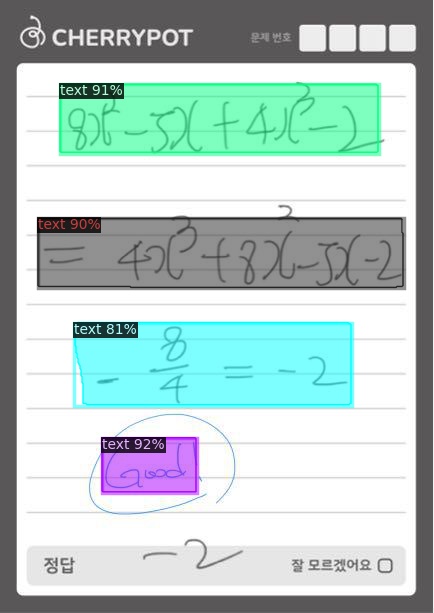 CHERRYPOT 문제 번호
text 91%
8x² - 5x + 4x³ - 2
text 90%
= 4x³ + 8x² - 5x - 2
text 81%
- 8/4 = -2
text 92%
Good!
정답 -2 잘 모르겠어요